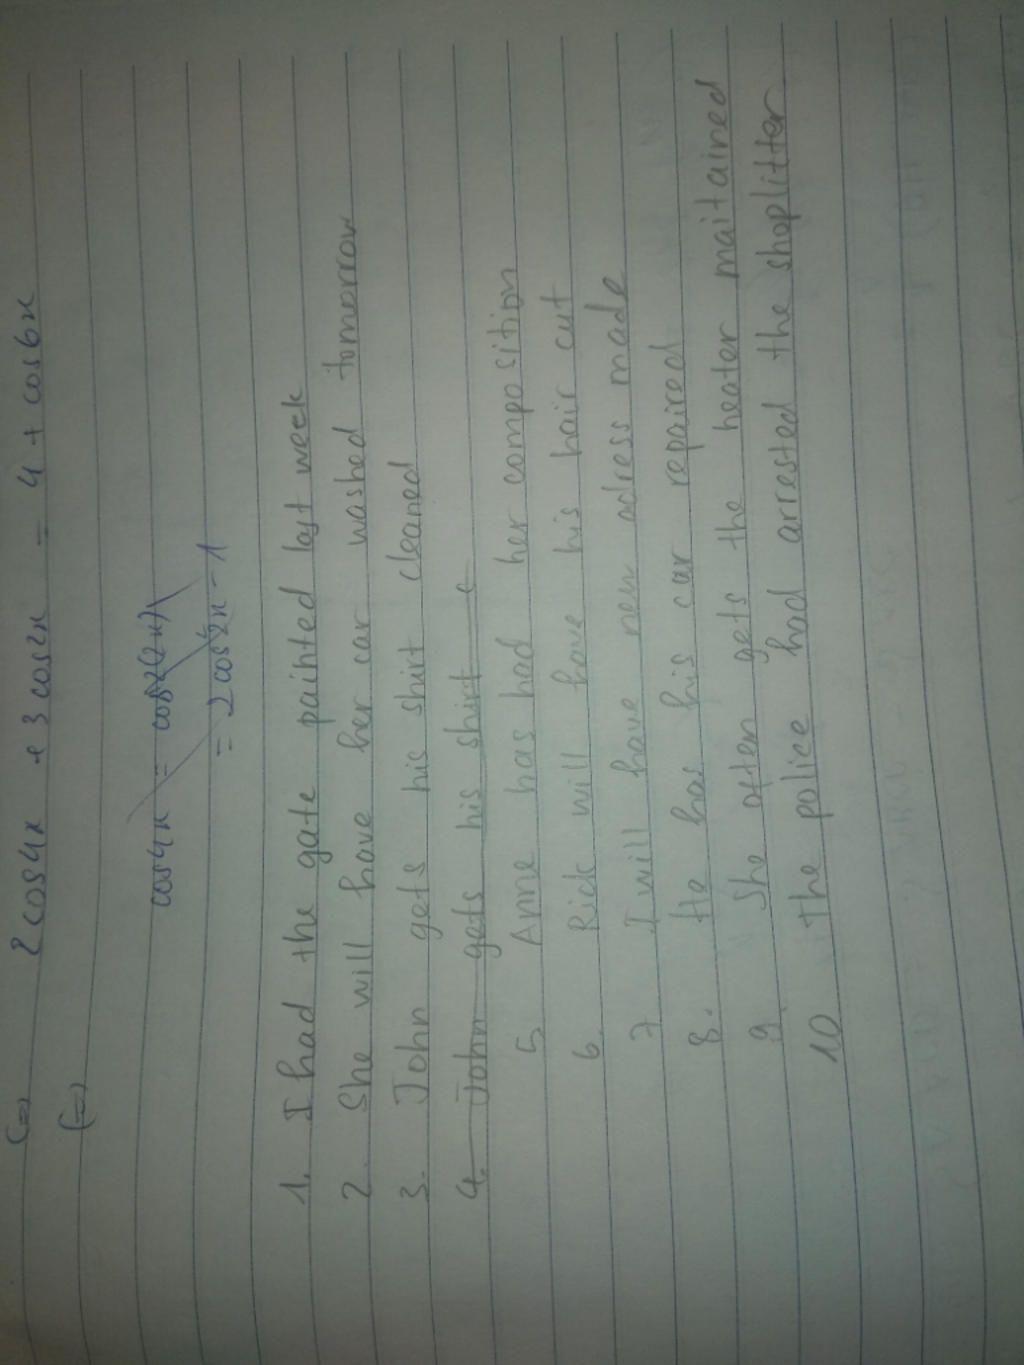 (=) 2cos4x + 3cos2x = 4 + cos6x
(=)
cos4x = cos2(2x)
= 2cos²2x - 1
1. I had the gate painted last week
2. She will have her car washed tomorrow
3. John gets his shirt cleaned
4. John gets his shirt c
5. Anne has had her composition
6. Rick will have his hair cut
7 I will have new adress made
8. He has his car repaired
9. She often gets the heater maitained
10 the police had arrested the shoplitter